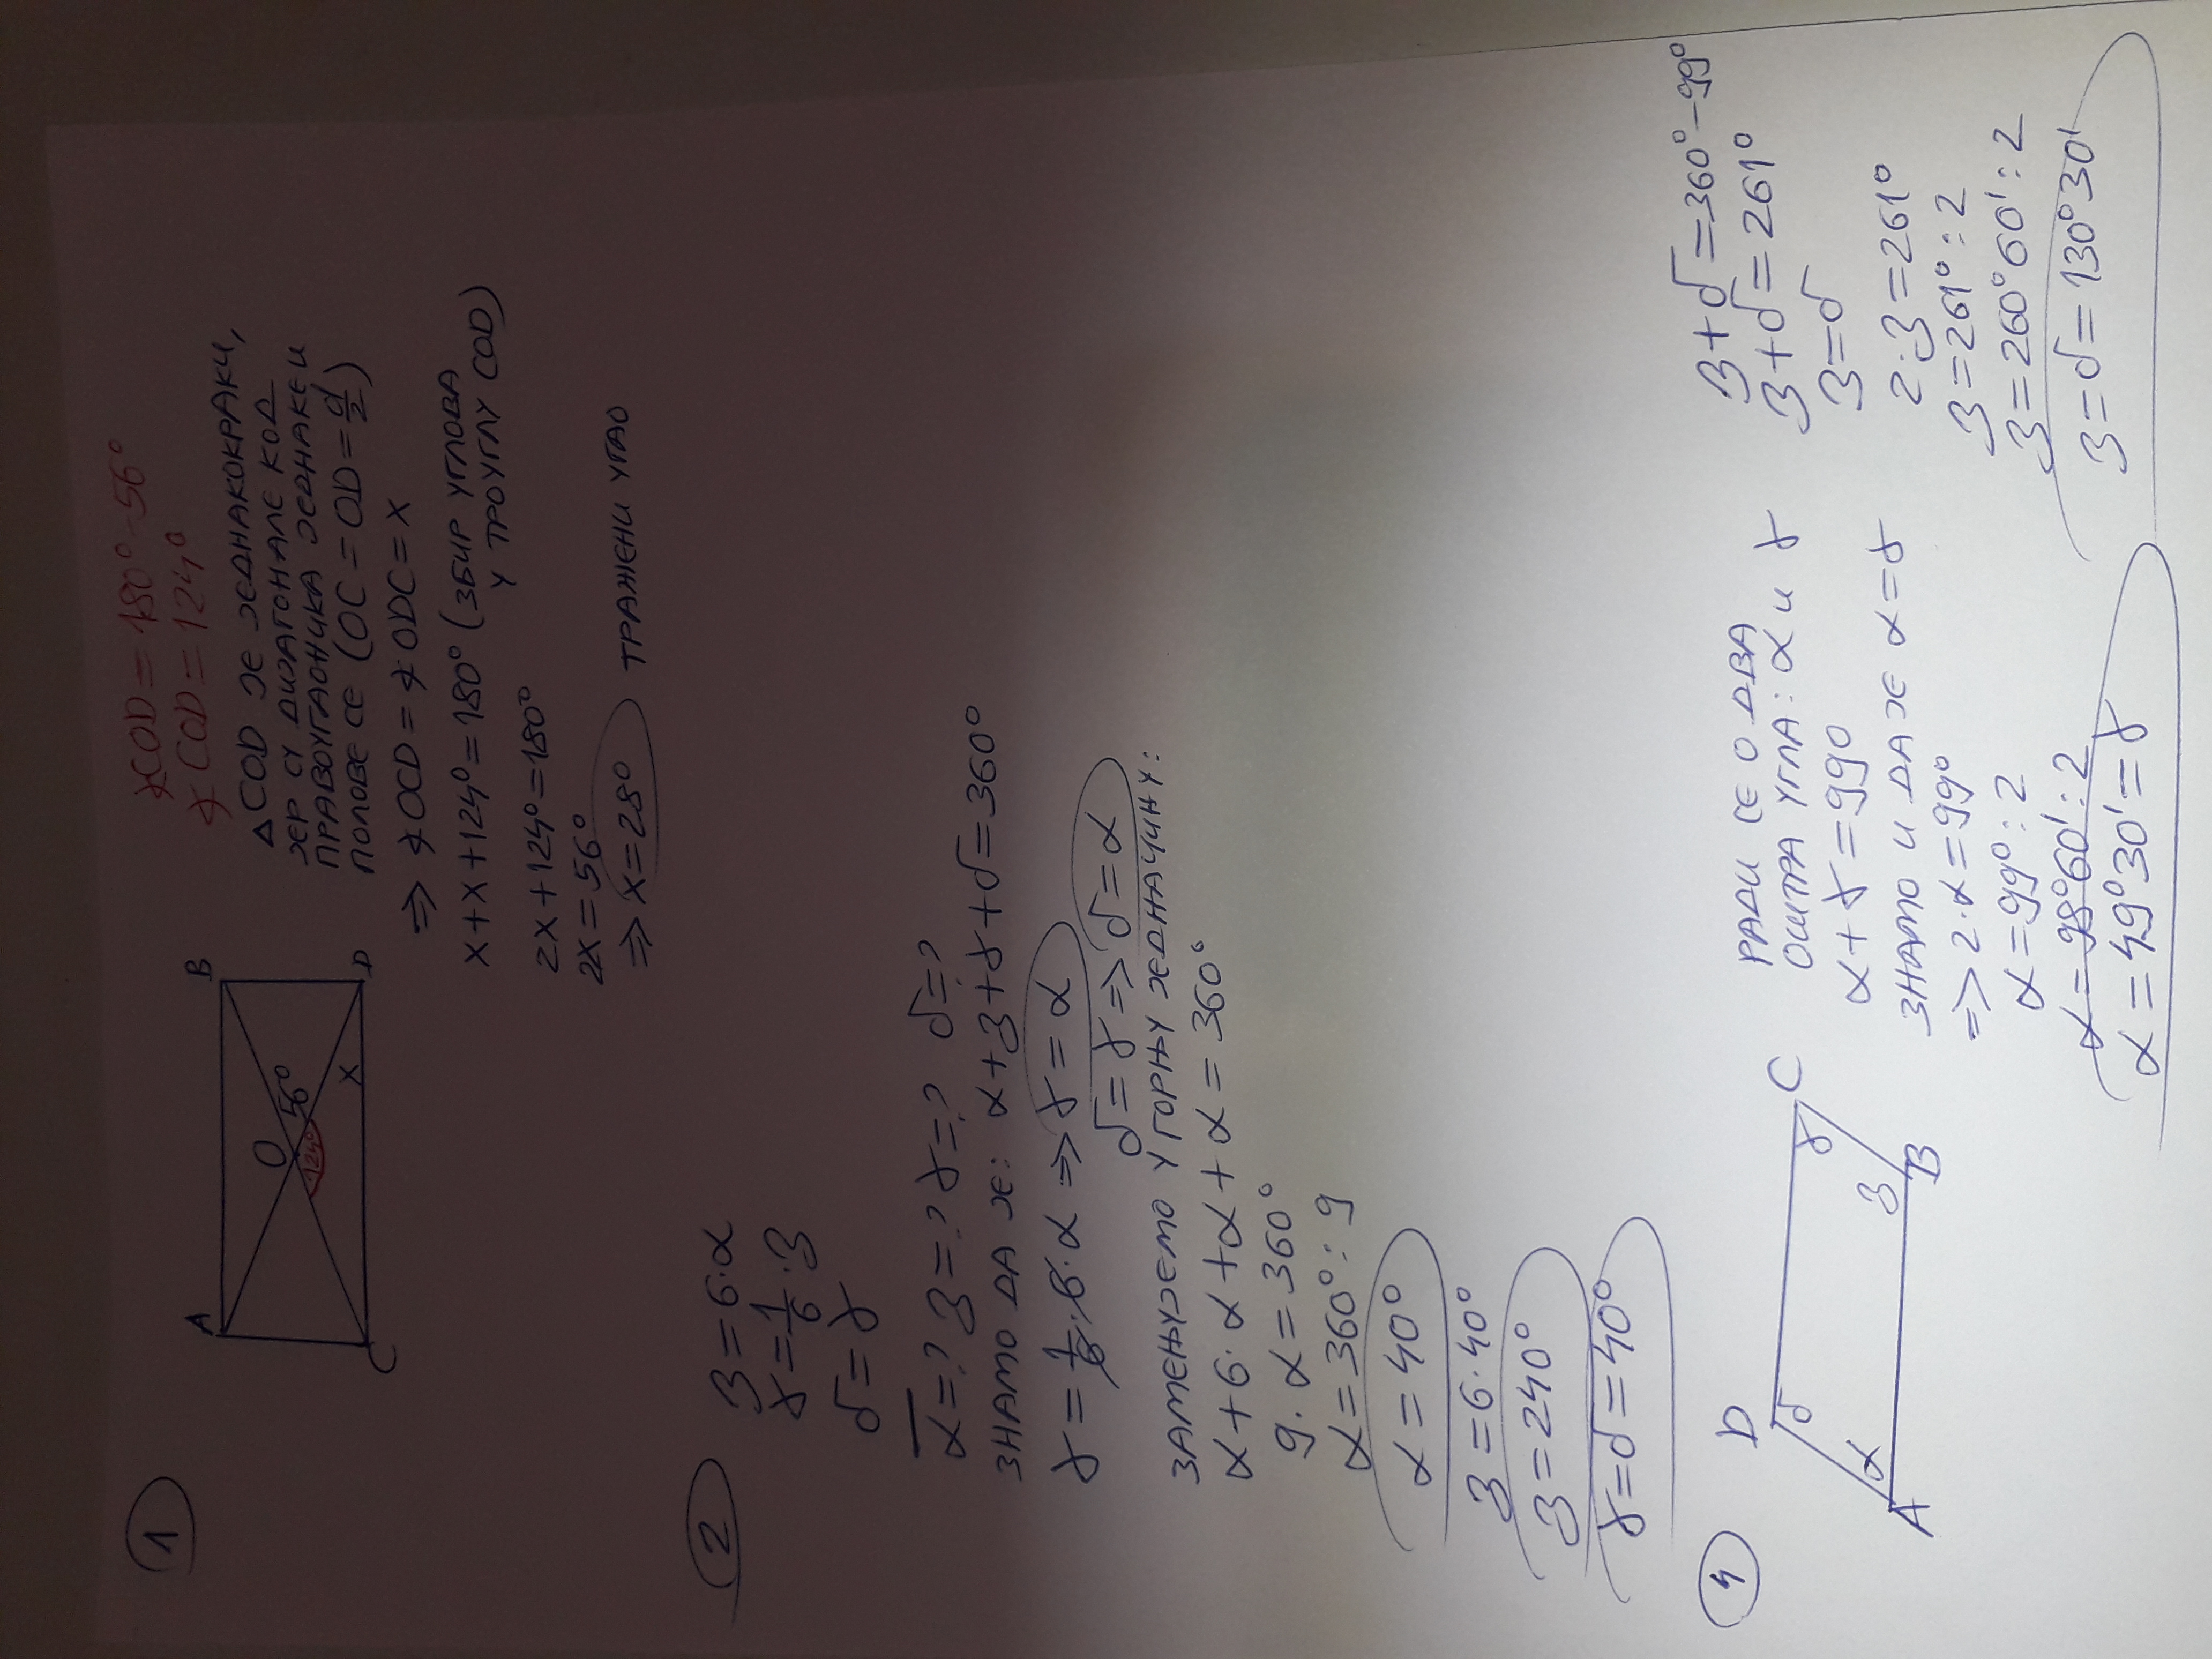 1
A
B
O
56°
124°
X
C
D
∢COD = 180° - 56°
∢COD = 124°
△COD ЈЕ ЈЕДНАКОКРАКИ,
ЈЕР СУ ДИЈАГОНАЛЕ КОД
ПРАВОУГАОНИКА ЈЕДНАКЕ И
ПОЛОВЕ СЕ (OC = OD = d/2)
⇒ ∢OCD = ∢ODC = X
X + X + 124° = 180° (ЗБИР УГЛОВА
У ТРОУГЛУ COD)
2X + 124° = 180°
2X = 56°
⇒ X = 28° ТРАЖЕНИ УГАО
2
β = 6·α
γ = 1/6·β
δ = γ
α = ? β = ? γ = ? δ = ?
ЗНАМО ДА ЈЕ: α + β + γ + δ = 360°
γ = 1/6·6·α ⇒ γ = α
δ = γ ⇒ δ = α
ЗАМЕЊУЈЕМО У ГОРЊУ ЈЕДНАЧИНУ:
α + 6·α + α + α = 360°
9·α = 360°
α = 360° : 9
α = 40°
β = 6·40°
β = 240°
γ = δ = 40°
4
D
C
δ
γ
α
β
A
B
РАДИ СЕ О ДВА
ОШТРА УГЛА: α И γ
α + γ = 99°
ЗНАМО И ДА ЈЕ α = γ
⇒ 2·α = 99°
α = 99° : 2
α = 98°60' : 2
α = 49°30' = γ
β + δ = 360° - 99°
β + δ = 261°
β = δ
2·β = 261°
β = 261° : 2
β = 260°60' : 2
β = δ = 130°30'